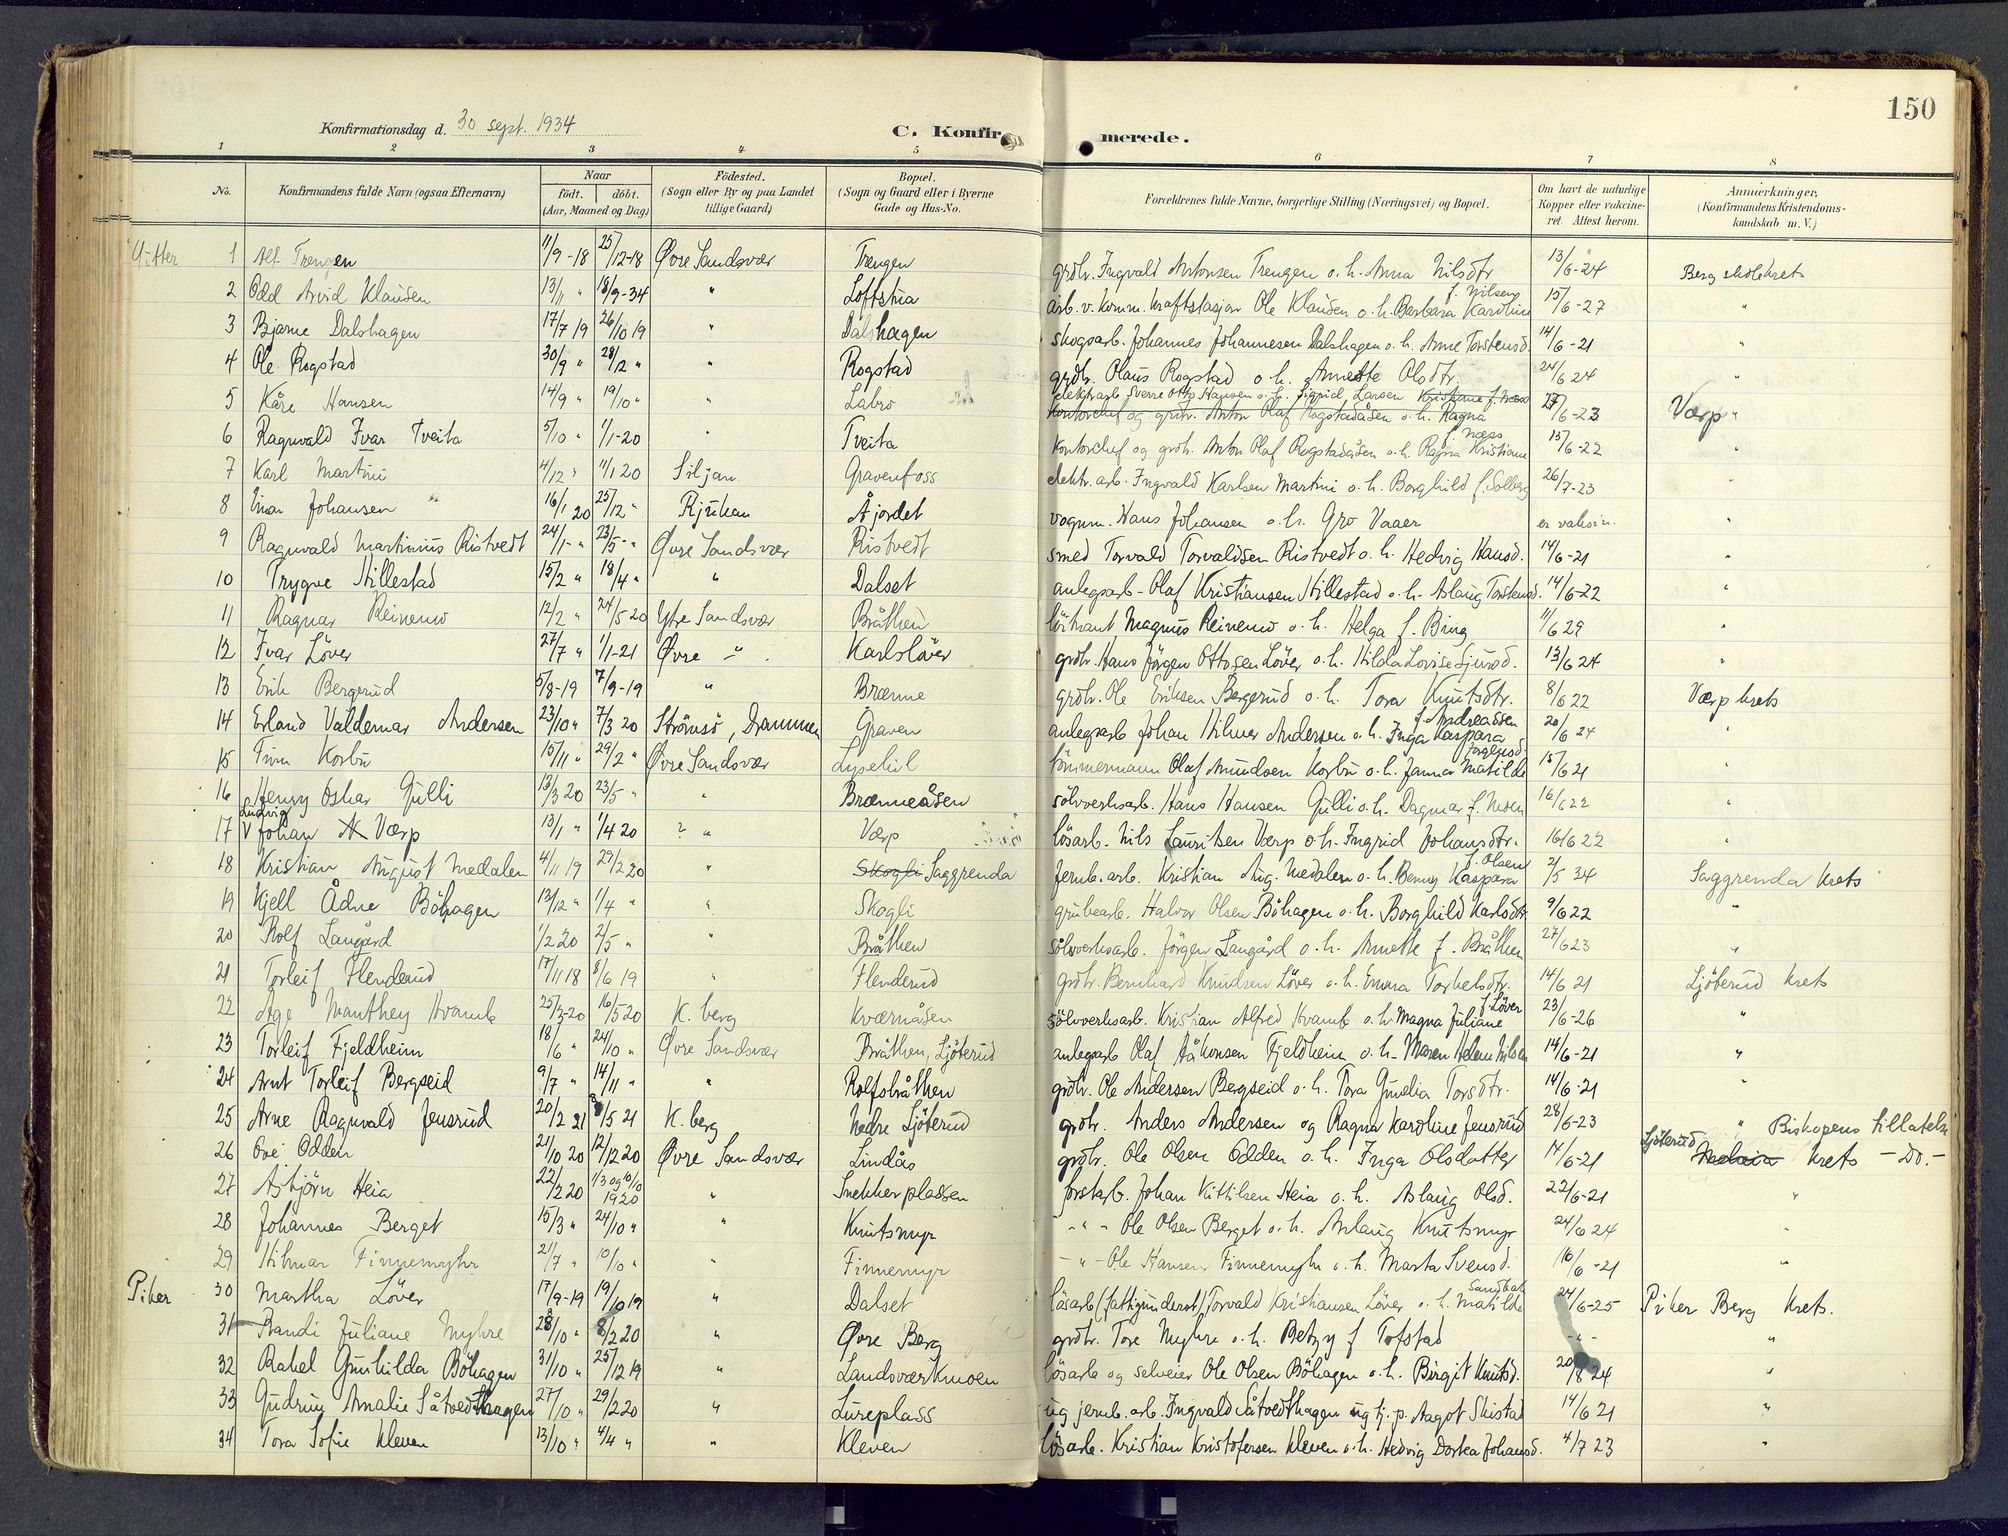 150
Konfirmationsdag d. 30 sept. 1934
C. Konfirmerede.
1 2 3 4 5 6 7 8
No. Konfirmandens fulde Navn (ogsaa Efternavn) Naar født. døbt. (Aar, Maaned og Dag) Fødested. (Sogn eller By og paa Landet tillige Gaard) Bopæl. (Sogn og Gaard eller i Byerne Gade og Hus-No. Forældrenes fulde Navne, borgerlige Stilling (Næringsvei) og Bopæl. Om havt de naturlige Kopper eller vakcineret. Attest herom. Anmærkninger. (Konfirmandens Kristendomskundskab m. V.)
Gutter 1 Alf Trengen 11/9-18 25/12-18 Øvre Sandsvær Trengen grdbr. Ingvald Antonsen Trengen o.h. Anna Nilsdtr 13/6-24 Berg skolekrets
2 Odd Arvid Klausen 13/11 " 18/9-34 " Loftstua arb. v. komm. kraftstasjon Ole Klausen o.h. Barbara Karoline f. Nilsen 15/6-27 "
3 Bjarne Dalshagen 17/7 19 26/10 19 " Dalshagen skogsarb. Johannes Johannesen Dalshagen o.h. Anne Torstensd. 14/6-21 "
4 Ole Rogstad 30/9 " 28/12 " " Rogstad grdbr. Olaus Rogstad o.h. Annette Olsdtr. 24/6 24 "
5 Kåre Hansen 14/9 " 19/10 " " Labro elektr.arb Sverre Otto Hansen o.h. Sigrid Larsen Kristiane f. Næss Kontorchef og grdbr. Anton Olaf Rogstadåsen o.h. Ragna /6-23 Værp "
6 Ragnvald Ivar Tveita 5/10 " 1/1-20 " Tveita Kontorchef og grdbr. Anton Olaf Rogstadåsen o.h. Ragna Kristiane f. Næss 15/6-22 "
7 Karl Martini 4/12 " 11/1 20 Siljan Gravenfoss elektr. arb. Ingvald Karlsen Martini o.h. Borghild f. Solberg 26/7-23 "
8 Einar Johansen 16/1 20 25/12 " Rjukan Åjordet vognm. Hans Johansen o.h. Gro Vaaer er vaksin. "
9 Ragnvald Martinius Ristvedt 24/1- " 23/5- " Øvre Sandsvær Ristvedt smed Torvald Torvaldsen Ristvedt o.h. Hedvig Hansd. 14/6-21 "
10 Trygve Hillestad 15/2 " 18/4 " " Dalset anlegsarb- Olaf Kristiansen Hillestad o.h. Aslaug Torstensd. 14/6-22 "
11 Ragnar Reinemo 12/2 " 24/5 20 Ytre Sandsvær Bråthen løitnant Magnus Reinemo o.h. Helga f. Bing 11/6 29 "
12 Ivar Løver 27/7 " 1/1-21 Øvre " Karlsløver grdbr. Hans Jørgen Ottosen Løver o.h. Hilda Lovise Sjursd. 13/6 24 "
13 Erik Bergerud 5/8-19 7/9-19 " Brænne grdbr. Ole Eriksen Bergerud o.h. Tora Knutsdtr. 8/6 22 Værp krets
14 Erland Valdemar Andersen 23/10 " 7/3 20 Strømsø, Drammen Graven anlegsarb Johan Hilmer Andersen o.h. Inga Kaspara f. Andreassen 20/6 24 "
15 Finn Korbu 15/11 " 29/2 " Øvre Sandsvær Lysehil tømmermann Olaf Amundsen Korbu o.h. Janna Matilde Jørgensd. 15/6 21 "
16 Henry Oskar Gulli 13/3 20 23/5 " " Brænneåsen sølvverksarb. Hans Hansen Gulli o.h. Dagmar f. Moen 16/6 22 "
17 Johan Ludvig N Værp 13/1 " 1/4 20 ? " Værp løsarb. Nils Lauritsen Værp o.h. Ingrid Johansdtr. 16/6 22 "
18 Kristian August Medalen 4/11 19 29/2 20 " Skogli Saggrenda Jernb. arb. Kristian Aug. Medalen o.h. Benny Kaspara f. Olsen 2/5 34 Saggrenda krets
19 Kjell Ådne Bøhagen 13/12 " 1/4 " " Skogli grubearb. Halvor Olsen Bøhagen o.h. Borghild Karlsdtr 9/6 22 "
20 Rolf Langård 1/2 20 2/5 " " Bråthen sølvverksarb. Jørgen Langård o.h. Annette f. Bråthen 27/6 23 "
21 Torleif Flenderud 17/11 18 8/6 19 " Flenderud grdbr. Bernhard Knudsen Løver o.h. Emma Torkelsdtr. 14/6 21 Ljøterud krets
22 Åge Manthey Kvamb 25/3-20 16/5 20 K. berg Kværnåsen sølvverksarb. Kristian Alfred Kvamb o.h. Magna Juliane f. Løver 23/6-26 "
23 Torleif Fjeldheim 18/6 " 24/10 " Øvre Sandsvær Bråthen, Ljøterud anlegsarb Olaf Håkonsen Fjeldheim o.h- Maren Helene Nilsen 14/6-21 "
24 Arnt Torleif Bergseid 9/7 " 14/11 " " Rolfsbråthen grdbr. Ole Andersen Bergseid o.h. Tora Gunelia Torsdtr. 14/6-21 "
25 Arne Ragnvald Jensrud 20/2 21 8/5 21 K. berg Nedre Ljøterud grdbr. Anders Andersen og Ragna Karoline Jensrud 28/6-23 " Biskopens tillatelse
26 Ove Odden 21/10 20 12/12 20 Øvre Sandsvær Lindås grdbr. Ole Olsen Odden o.h. Inga Olsdatter 14/6-21 Ljøterud krets -Do.-
27 Asbjørn Heia 22/2 20 1/3 og 10/10 1920 " Snekkerplassen forstarb. Johan Kittilsen Heia o.h. Aslaug Olsd. 22/6-21 "
28 Johannes Berget 15/3 " 24/10 " " Knutsmyr - " - Ole Olsen Berget o.h. Aslaug Knutsmyr 24/6 24 "
29 Hilmar Finnemyhr 21/7 " 10/10 " " Finnemyr - " - Ole Hansen Finnemyhr o.h. Marta Svensd. 16/6-21 "
Piker 30 Martha Løver 17/9-19 19/10 19 " Dalset løsarb (fattigunderst) Torvald Kristiansen Løver o.h. Matilde Sandbak 24/6-25 Piker Berg krets.
31 Randi Juliane Myhre 28/10 " 8/2 20 " Øvre Berg grdbr. Tore Myhre o.h. Betzy f Tofstad - " - "
32 Rakel Gunhilda Bøhagen 31/10 " 25/12 19 " Landsværkmoen løsarb og selveier Ole Olsen Bøhagen o.h. Birgit Knutsd. 20/8 24 "
33 Gudrun Amalie Såtvedthagen 27/10 " 29/2 20 " Lureplass ug jernb. arb. Ingvald Såtvedthagen ug tj. p. Aagot Skistad 14/6 21 "
34 Tora Sofie Kleven 13/10 " 4/4 " " Kleven løsarb. Kristian Kristofersen Kleven o.h. Hedvig Dortea Johansd. 4/7 23 "